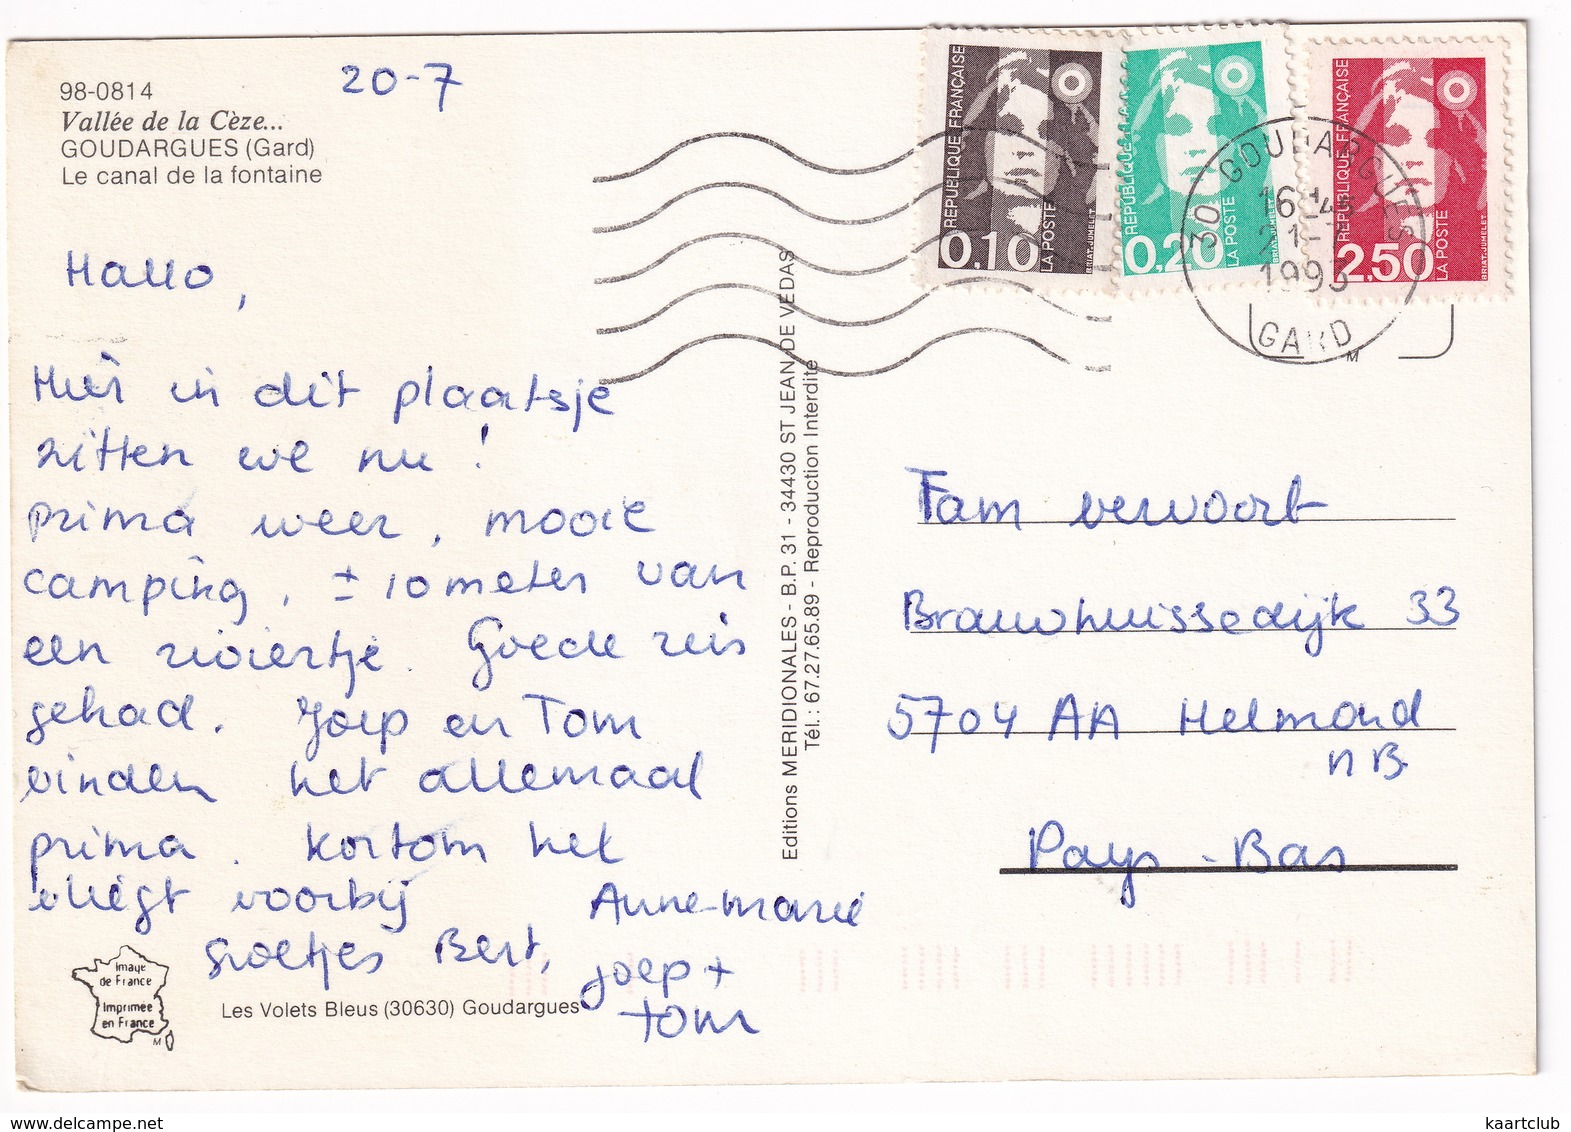 98-0814
Vallée de la Cèze...
GOUDARGUES (Gard)
Le canal de la fontaine
20-7
Hallo,
Hier in dit plaatsje
zitten we nu!
prima weer, mooie
camping, ± 10 meter van
een riviertje. Goede reis
gehad. Joep en Tom
vinden het allemaal
prima. Kortom het
vliegt voorbij
groetjes Bert, Annemarie
joep +
tom
Image
de France
Imprimée
en France
M
Les Volets Bleus (30630) Goudargues
Editions MERIDIONALES - B.P. 31 - 34430 ST JEAN DE VEDAS
Tél.: 67.27.65.89 - Reproduction Interdite
REPUBLIQUE FRANÇAISE
0,10
LA POSTE
BRIAT-JUMELET
REPUBLIQUE
0,20
LA POSTE
BRIAT-JUMELET
REPUBLIQUE FRANÇAISE
2,50
LA POSTE
BRIAT-JUMELET
30 GOUDARGUES
16 H 45
21-7
1993
GARD
M
Fam vervoort
Brouwhuissedijk 33
5704 AA Helmond
NB.
Pays-Bas
www.delcampe.net
kaartclub